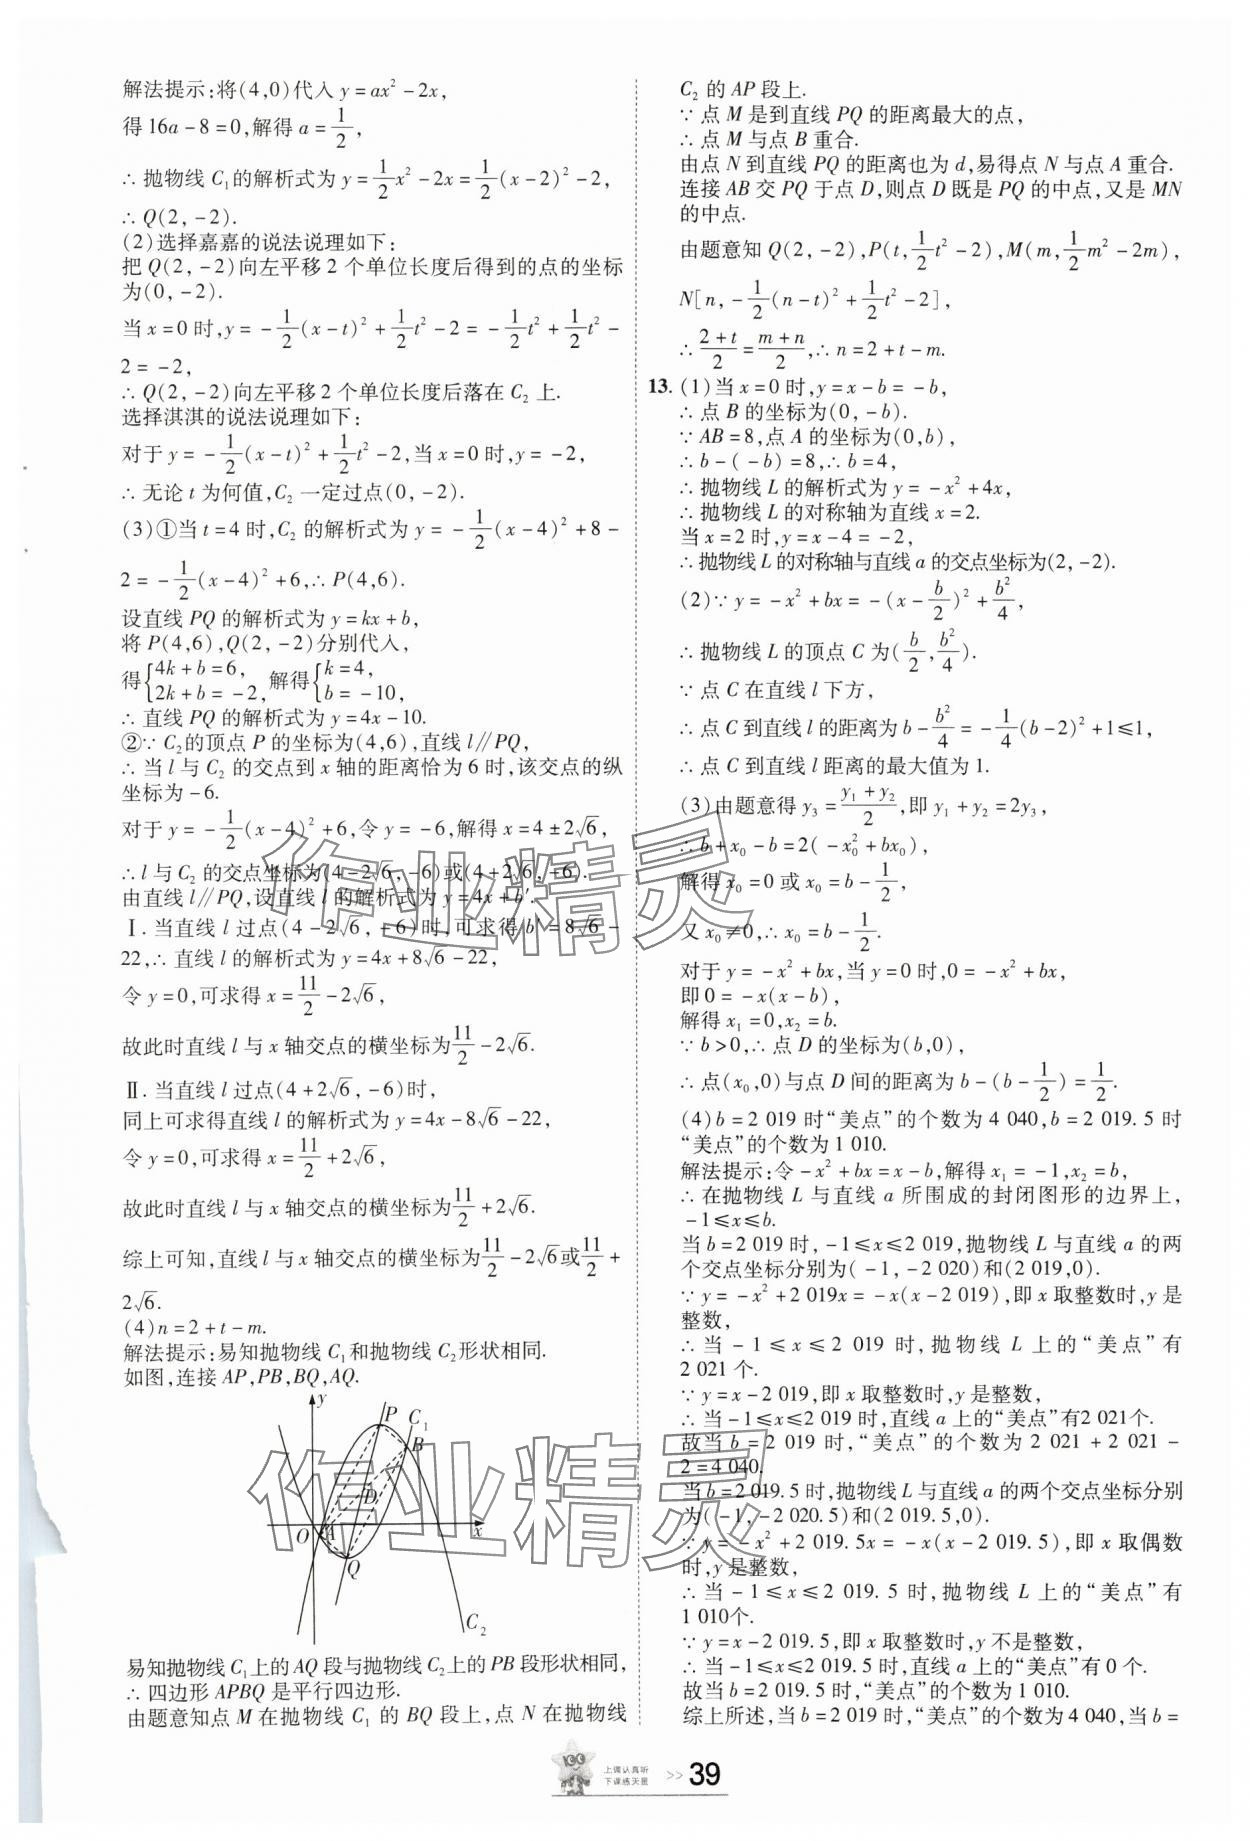 解法提示:将(4,0)代入 y=ax²-2x,
得 16a-8=0,解得 a=1/2,
∴ 抛物线 C₁的解析式为 y=1/2x²-2x=1/2(x-2)²-2,
∴ Q(2,-2).
(2)选择嘉嘉的说法说理如下:
把 Q(2,-2)向左平移 2 个单位长度后得到的点的坐标
为(0,-2).
当 x=0 时,y=-1/2(x-t)²+1/2t²-2=-1/2t²+1/2t²-
2=-2,
∴ Q(2,-2)向左平移 2 个单位长度后落在 C₂ 上.
选择淇淇的说法说理如下:
对于 y=-1/2(x-t)²+1/2t²-2,当 x=0 时,y=-2,
∴ 无论 t 为何值,C₂ 一定过点(0,-2).
(3)①当 t=4 时,C₂ 的解析式为 y=-1/2(x-4)²+8-
2=-1/2(x-4)²+6,∴ P(4,6).
设直线 PQ 的解析式为 y=kx+b,
将 P(4,6),Q(2,-2)分别代入,
得{4k+b=6, 2k+b=-2, 解得{k=4, b=-10,
∴ 直线 PQ 的解析式为 y=4x-10.
②∵ C₂的顶点 P 的坐标为(4,6),直线 l∥PQ,
∴ 当 l 与 C₂ 的交点到 x 轴的距离恰为 6 时,该交点的纵
坐标为-6.
对于 y=-1/2(x-4)²+6,令 y=-6,解得 x=4±2√6,
∴ l 与 C₂ 的交点坐标为(4-2√6,-6)或(4+2√6,-6).
由直线 l∥PQ,设直线 l 的解析式为 y=4x+b′.
Ⅰ. 当直线 l 过点(4-2√6,-6)时,可求得 b′=8√6-
22,∴ 直线 l 的解析式为 y=4x+8√6-22,
令 y=0,可求得 x=11/2-2√6,
故此时直线 l 与 x 轴交点的横坐标为11/2-2√6.
Ⅱ. 当直线 l 过点(4+2√6,-6)时,
同上可求得直线 l 的解析式为 y=4x-8√6-22,
令 y=0,可求得 x=11/2+2√6,
故此时直线 l 与 x 轴交点的横坐标为11/2+2√6.
综上可知,直线 l 与 x 轴交点的横坐标为11/2-2√6或11/2+
2√6.
(4)n=2+t-m.
解法提示:易知抛物线 C₁和抛物线 C₂形状相同.
如图,连接 AP,PB,BQ,AQ.
y
P C₁
B
D
O A x
Q
C₂
易知抛物线 C₁上的 AQ 段与抛物线 C₂上的 PB 段形状相同,
∴ 四边形 APBQ 是平行四边形.
由题意知点 M 在抛物线 C₁ 的 BQ 段上,点 N 在抛物线
C₂ 的 AP 段上.
∵ 点 M 是到直线 PQ 的距离最大的点,
∴ 点 M 与点 B 重合.
由点 N 到直线 PQ 的距离也为 d,易得点 N 与点 A 重合.
连接 AB 交 PQ 于点 D,则点 D 既是 PQ 的中点,又是 MN
的中点.
由题意知 Q(2,-2),P(t,1/2t²-2),M(m,1/2m²-2m),
N[n,-1/2(n-t)²+1/2t²-2],
∴ (2+t)/2=(m+n)/2,∴ n=2+t-m.
13. (1)当 x=0 时,y=x-b=-b,
∴ 点 B 的坐标为(0,-b).
∵ AB=8,点 A 的坐标为(0,b),
∴ b-(-b)=8,∴ b=4,
∴ 抛物线 L 的解析式为 y=-x²+4x,
∴ 抛物线 L 的对称轴为直线 x=2.
当 x=2 时,y=x-4=-2,
∴ 抛物线 L 的对称轴与直线 a 的交点坐标为(2,-2).
(2)∵ y=-x²+bx=-(x-b/2)²+b²/4,
∴ 抛物线 L 的顶点 C 为(b/2,b²/4).
∵ 点 C 在直线 l 下方,
∴ 点 C 到直线 l 的距离为 b-b²/4=-1/4(b-2)²+1≤1,
∴ 点 C 到直线 l 距离的最大值为 1.
(3)由题意得 y₃=(y₁+y₂)/2,即 y₁+y₂=2y₃,
∴ b+x₀-b=2(-x₀²+bx₀),
解得 x₀=0 或 x₀=b-1/2,
又 x₀≠0,∴ x₀=b-1/2.
对于 y=-x²+bx,当 y=0 时,0=-x²+bx,
即 0=-x(x-b),
解得 x₁=0,x₂=b.
∵ b>0,∴ 点 D 的坐标为(b,0),
∴ 点(x₀,0)与点 D 间的距离为 b-(b-1/2)=1/2.
(4)b=2 019 时“美点”的个数为 4 040,b=2 019.5 时
“美点”的个数为 1 010.
解法提示:令-x²+bx=x-b,解得 x₁=-1,x₂=b,
∴ 在抛物线 L 与直线 a 所围成的封闭图形的边界上,
-1≤x≤b.
当 b=2 019 时,-1≤x≤2 019,抛物线 L 与直线 a 的两
个交点坐标分别为(-1,-2 020)和(2 019,0).
∵ y=-x²+2 019x=-x(x-2 019),即 x 取整数时,y 是
整数,
∴ 当-1≤x≤2 019 时,抛物线 L 上的“美点”有
2 021 个.
∵ y=x-2 019,即 x 取整数时,y 是整数,
∴ 当-1≤x≤2 019 时,直线 a 上的“美点”有2 021个.
故当 b=2 019 时,“美点”的个数为 2 021+2 021-
2=4 040.
当 b=2 019.5 时,抛物线 L 与直线 a 的两个交点坐标分别
为(-1,-2 020.5)和(2 019.5,0).
∵ y=-x²+2 019.5x=-x(x-2 019.5),即 x 取偶数
时,y 是整数,
∴ 当-1≤x≤2 019.5 时,抛物线 L 上的“美点”有
1 010个.
∵ y=x-2 019.5,即 x 取整数时,y 不是整数,
∴ 当-1≤x≤2 019.5 时,直线 a 上的“美点”有 0 个.
故当 b=2 019.5 时,“美点”的个数为 1 010.
综上所述,当 b=2 019 时,“美点”的个数为 4 040,当 b=
作业精灵
作业精灵
上课认真听
下课练天星
>> 39